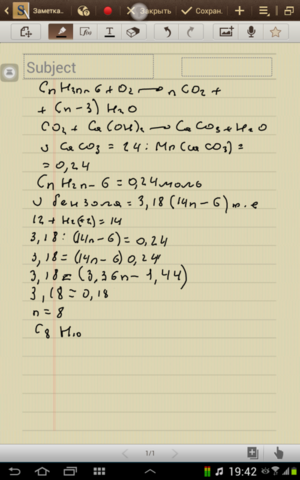 Заметка..
Закрыть
Сохран.
Subject
CnH2n-6 + O2 → nCO2 +
+ (n-3) H2O
CO2 + Ca(OH)2 → CaCO3 + H2O
υ CaCO3 = 24 : Mn(CaCO3) =
= 0,24
CnH2n-6 = 0,24 моль
υ бензола = 3,18 (14n-6) ю.е
12 + H2(+2) = 14
3,18 : (14n-6) = 0,24
3,18 = (14n-6) 0,24
3,18 = (3,36n - 1,44)
3,18 = 0,18
n = 8
C8 H10
1/1
19:42